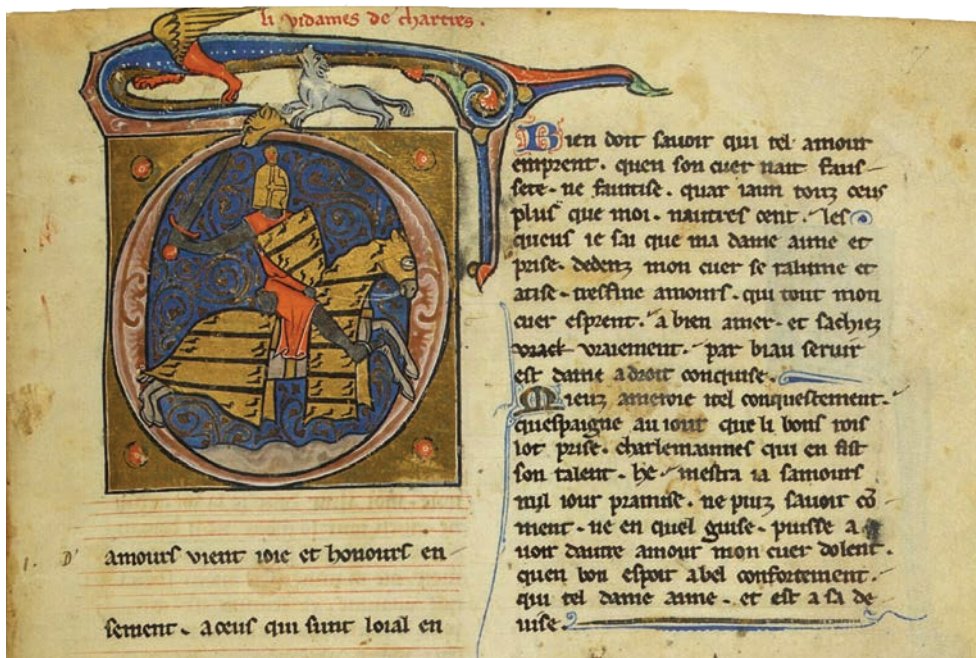 li vidames de chartres.
1. D'
amours vient ioie et honours en
sement. a ceus qui sunt loial en
Bien doit savoir qui tel amour
emprent. quen son cuer nait faus
sete. ne faintise. quar iaim touz ceus
plus que moi. nautres cent. les
queus ie sai que ma dame aime et
prise. dedenz mon cuer se ralume et
atise. tresfine amours. qui tout mon
cuer esprent. a bien amer. et sachiez
vraiement. par biau servir
est dame a droit conquise.
Mieuz ameroie itel conquestement.
quespaigne au iour que li bons rois
lot prise. charlemaines qui en fist
son talent. he mestra ia samours
nul iour pramise. ne puiz savoir cō
ment. ne en quel guise. puisse a
voir dautre amour mon cuer dolent.
quen bon espoir a bel confortement.
qui tel dame aime. et est a sa de
vise.